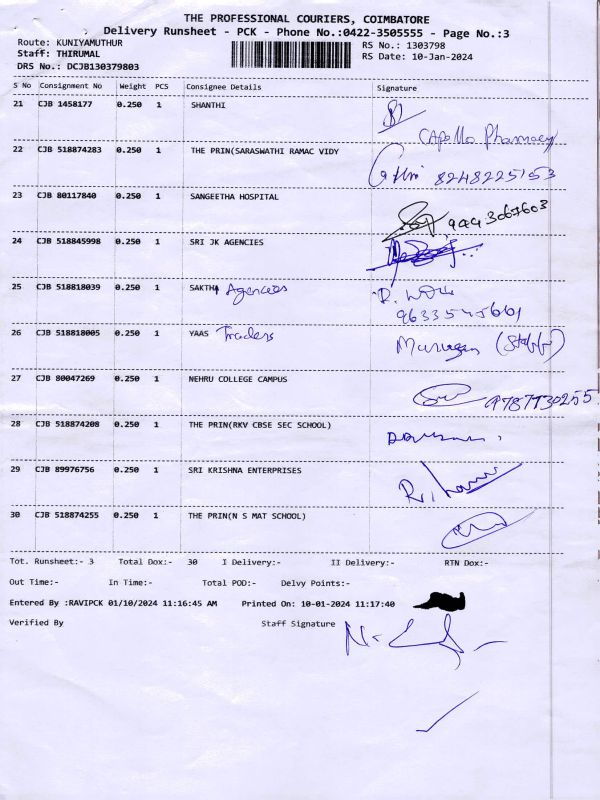 THE PROFESSIONAL COURIERS, COIMBATORE
Delivery Runsheet - PCK - Phone No.:0422-3505555 - Page No.:3
Route: KUNIYAMUTHUR RS No.: 1303798
Staff: THIRUMAL RS Date: 10-Jan-2024
DRS No.: DCJB130379803
S No Consignment No Weight PCS Consignee Details Signature
21 CJB 1458177 0.250 1 SHANTHI
Pharmacy
22 CJB 518874283 0.250 1 THE PRIN(SARASWATHI RAMAC VIDY
8248225153
23 CJB 80117840 0.250 1 SANGEETHA HOSPITAL 9443067603
24 CJB 518845998 0.250 1 SRI JK AGENCIES
25 CJB 518818039 0.250 1 SAKTHI Agencies
26 CJB 518818005 0.250 1 YAAS Traders (Staff)
27 CJB 80047269 0.250 1 NEHRU COLLEGE CAMPUS 9787730255
28 CJB 518874208 0.250 1 THE PRIN(RKV CBSE SEC SCHOOL)
29 CJB 89976756 0.250 1 SRI KRISHNA ENTERPRISES
30 CJB 518874255 0.250 1 THE PRIN(N S MAT SCHOOL)
Tot. Runsheet:- 3 Total Dox:- 30 I Delivery:- II Delivery:- RTN Dox:-
Out Time:- In Time:- Total POD:- Delvy Points:-
Entered By :RAVIPCK 01/10/2024 11:16:45 AM Printed On: 10-01-2024 11:17:40
Verified By Staff Signature